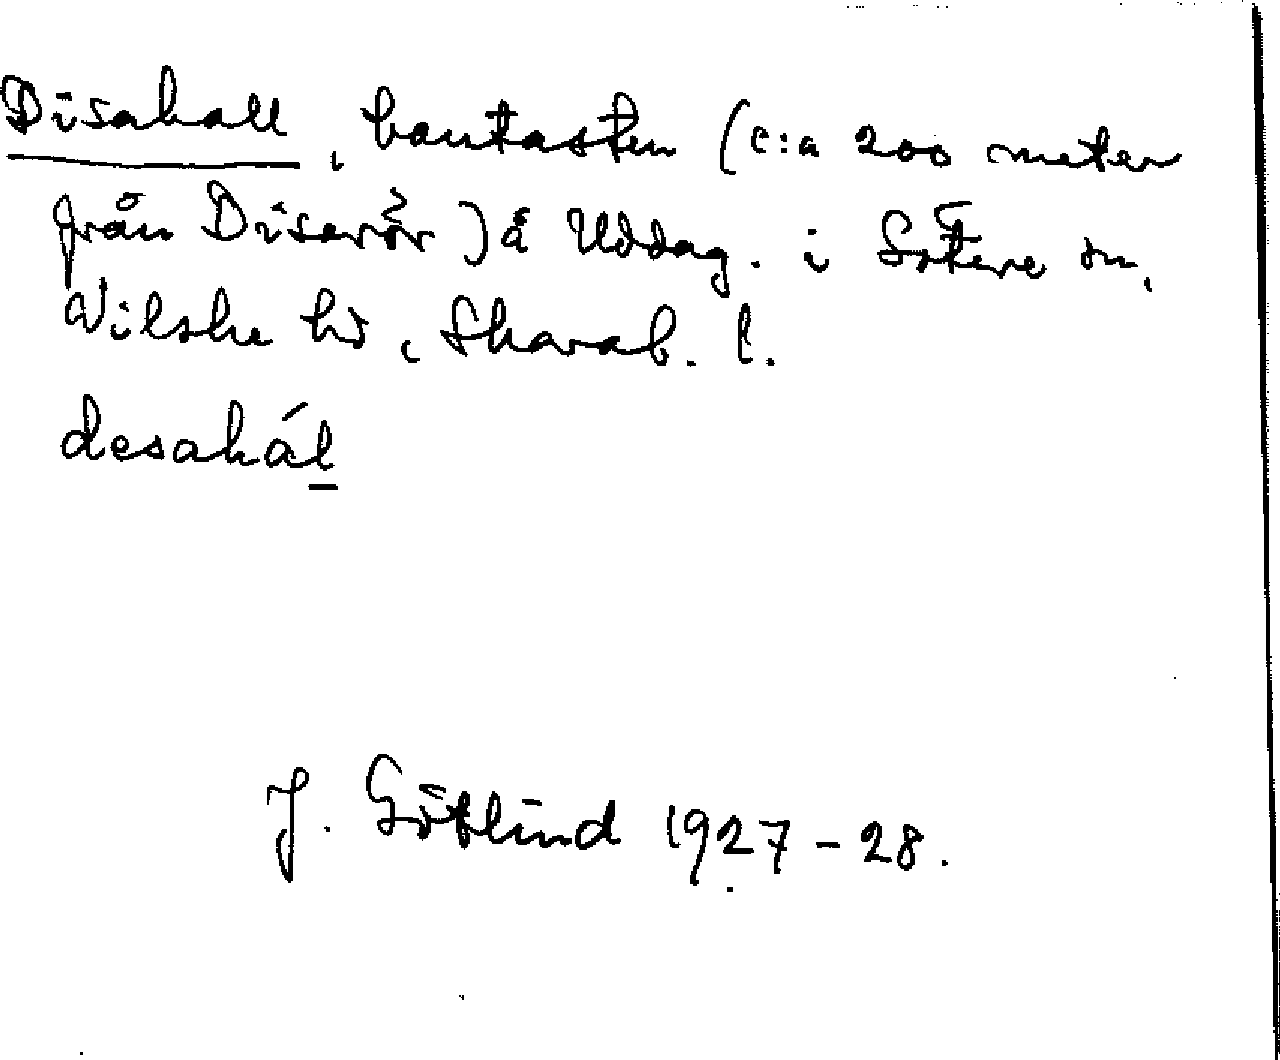 Disahall, bautasten (c:a 200 meter
från Disarör) å Uddag. i Sätene sn,
Vilske hd, Skarab. l.
desahál
J. Götlind 1927-28.